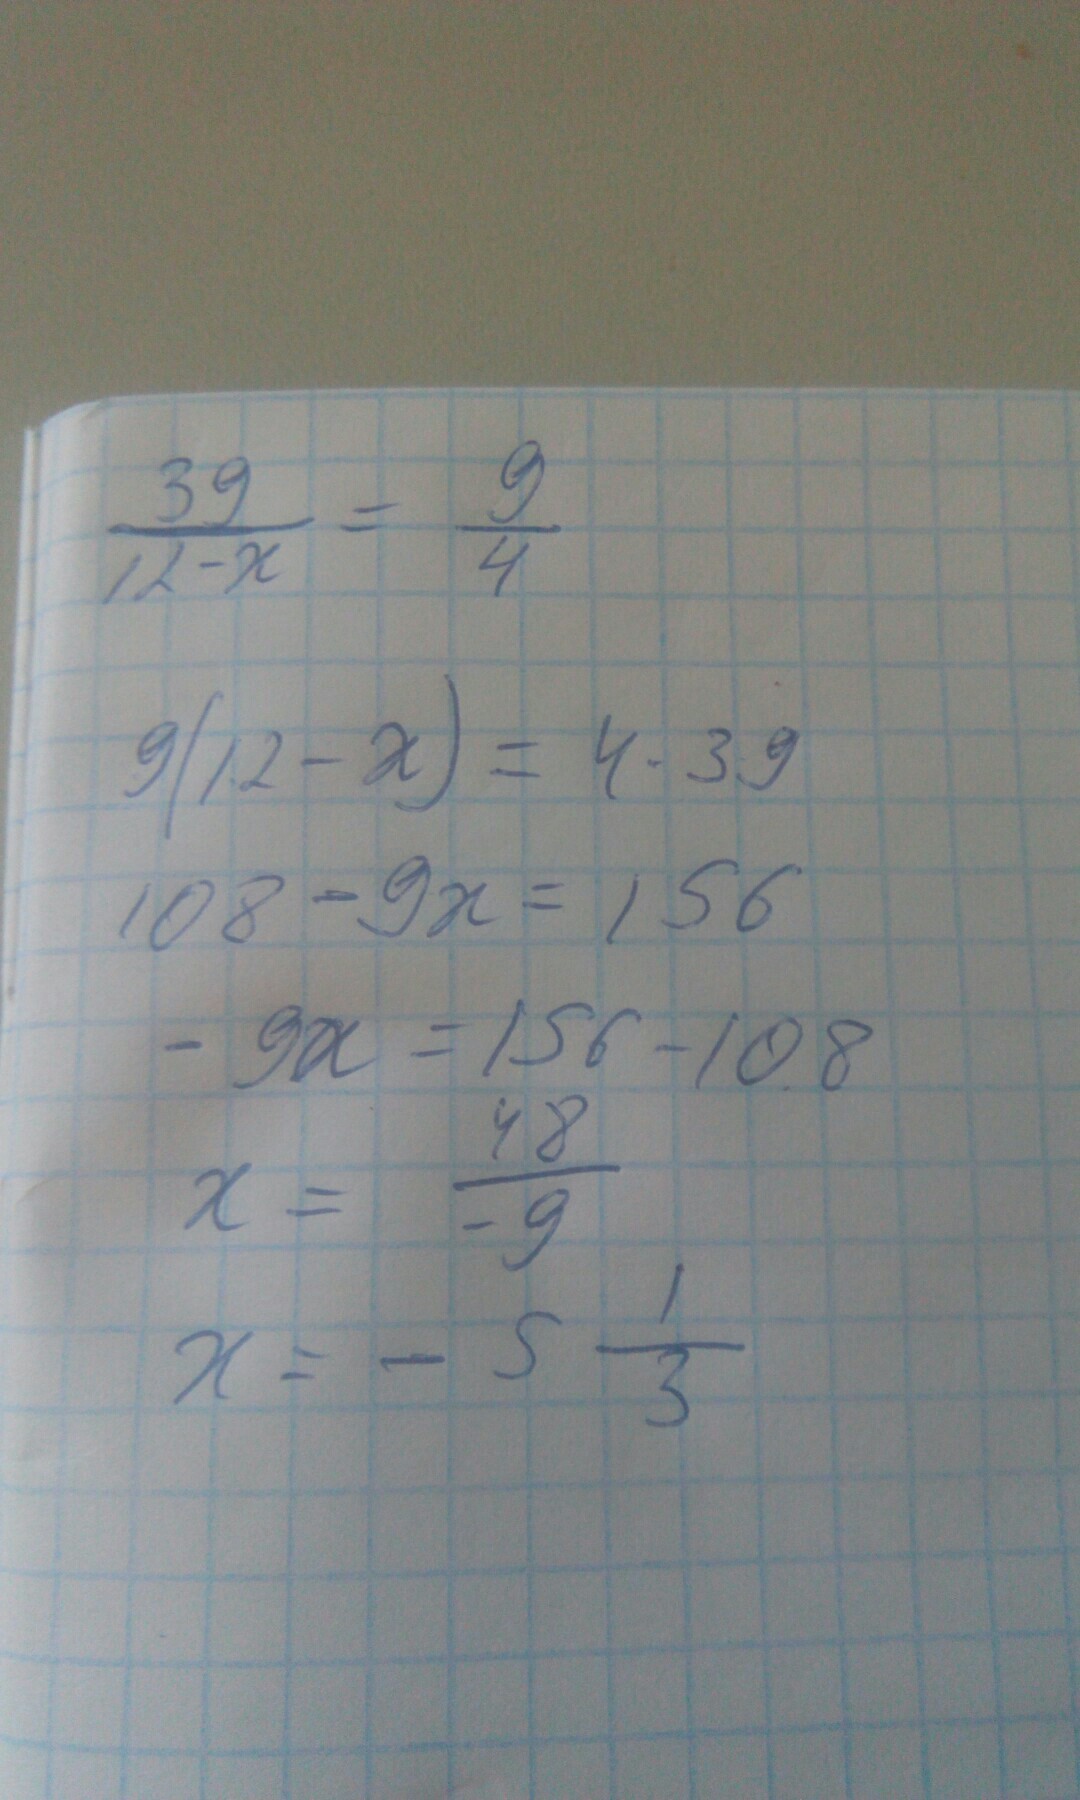 39/(12-x) = 9/4
9(12-x) = 4·39
108-9x = 156
-9x = 156-108
x = 48/-9
x = -5 1/3